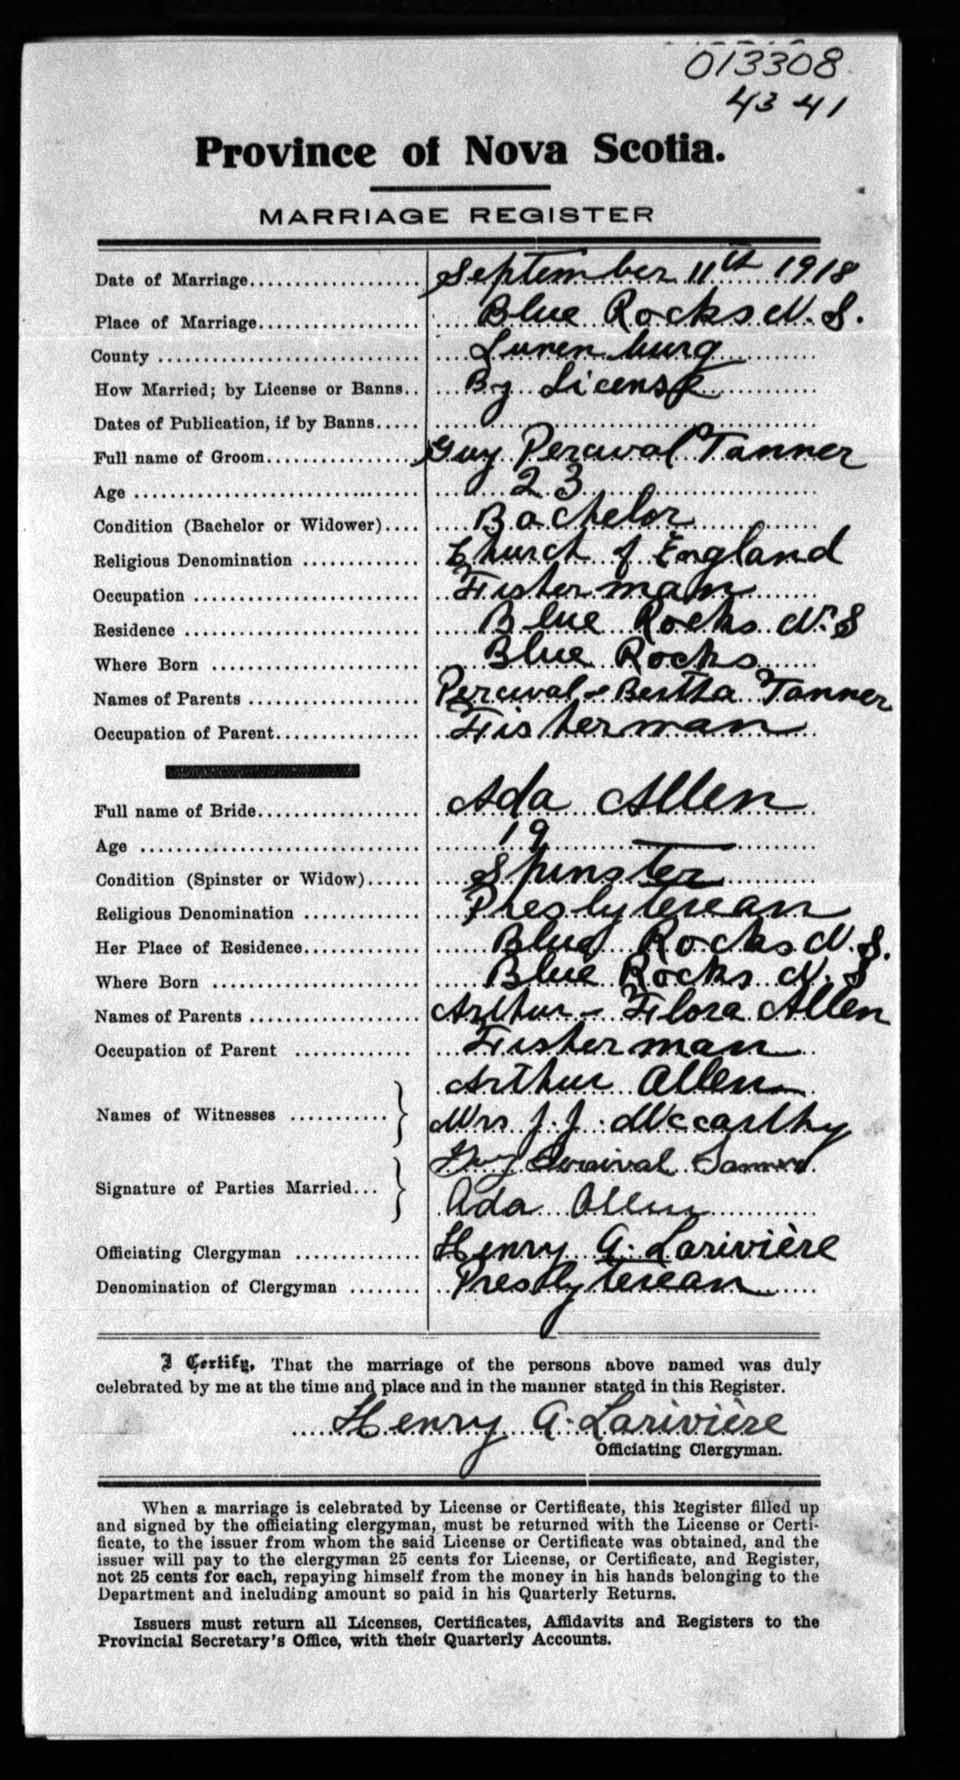 013308
43 41
Province of Nova Scotia.
MARRIAGE REGISTER
Date of Marriage................... September 11th 1918
Place of Marriage.................. Blue Rocks N. S.
County ............................ Lunenburg
How Married; by License or Banns.. By License
Dates of Publication, if by Banns.....
Full name of Groom................. Guy Percival Tanner
Age ............................... 23
Condition (Bachelor or Widower).... Bachelor
Religious Denomination ............ Church of England
Occupation ........................ Fisherman
Residence ......................... Blue Rocks N. S
Where Born ........................ Blue Rocks
Names of Parents .................. Percival & Bertha Tanner
Occupation of Parent............... Fisherman
Full name of Bride................. Ada Allen
Age ............................... 19
Condition (Spinster or Widow)...... Spinster
Religious Denomination ............ Presbyterean
Her Place of Residence............. Blue Rocks N. S.
Where Born ........................ Blue Rocks N. S
Names of Parents .................. Arthur - Flora Allen
Occupation of Parent .............. Fisherman
Names of Witnesses ........... } Arthur Allen
Mrs J. J. McCarthy
Signature of Parties Married... } Guy Percival Tanner
Ada Allen
Officiating Clergyman ............. Henry A. Larivière
Denomination of Clergyman ........ Presbyterean
I Certify, That the marriage of the persons above named was duly
celebrated by me at the time and place and in the manner stated in this Register.
Henry A. Larivière
Officiating Clergyman.
When a marriage is celebrated by License or Certificate, this Register filled up
and signed by the officiating clergyman, must be returned with the License or Certi-
ficate, to the issuer from whom the said License or Certificate was obtained, and the
issuer will pay to the clergyman 25 cents for License, or Certificate, and Register,
not 25 cents for each, repaying himself from the money in his hands belonging to the
Department and including amount so paid in his Quarterly Returns.
Issuers must return all Licenses, Certificates, Affidavits and Registers to the
Provincial Secretary's Office, with their Quarterly Accounts.